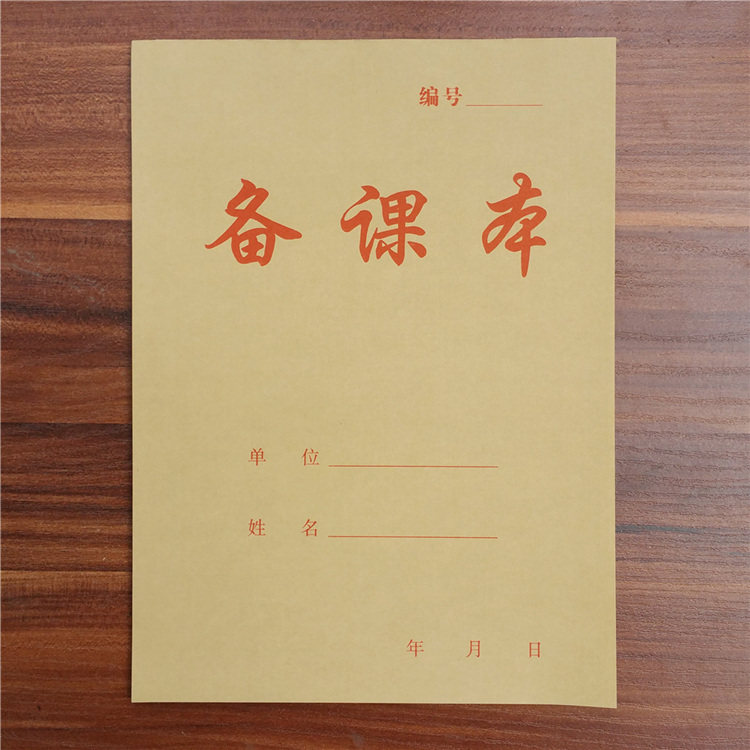 编号
备课本
单位
姓名
年 月 日